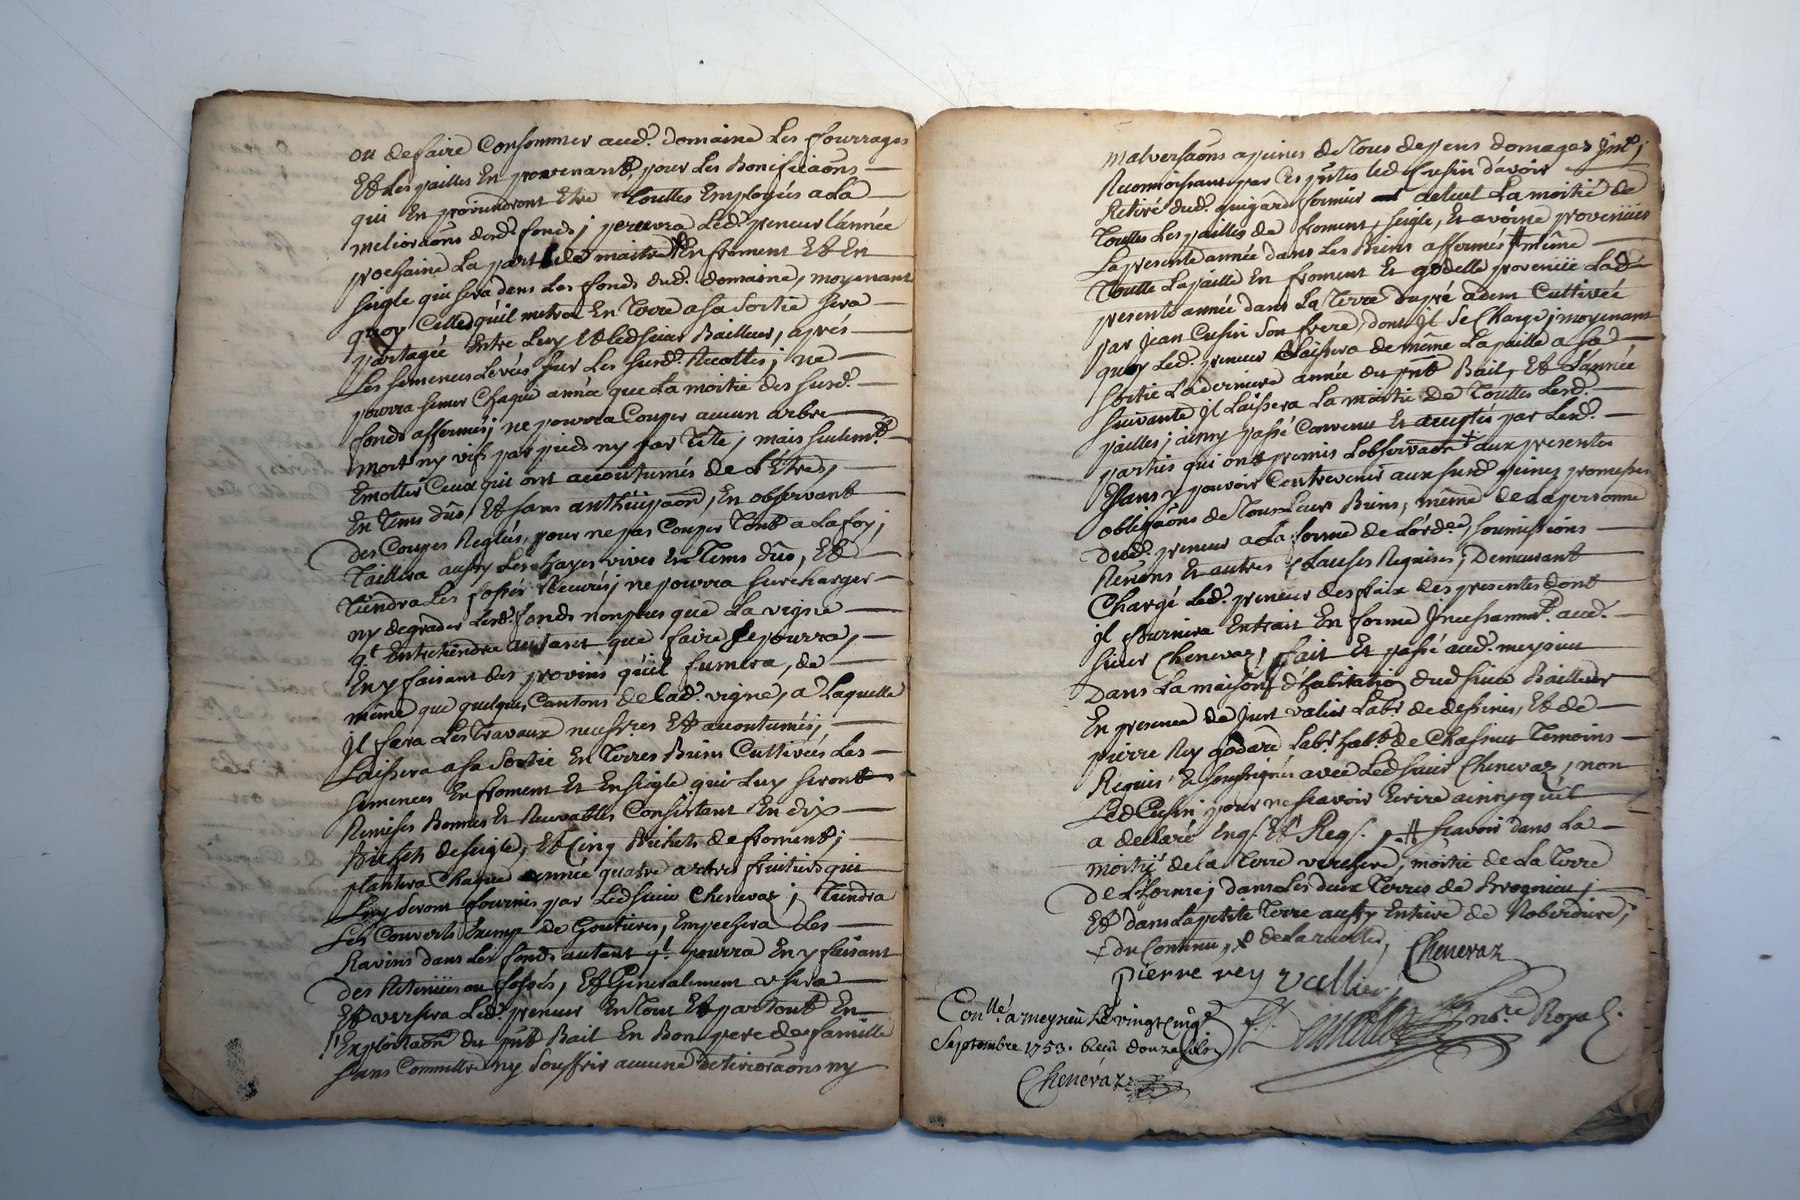 ou defaire Consommer aud.^t domaine Les fourrages
Et Les pailles En provenants, pour Les Bonificaons
qui En proviendront Etre Touttes Employés a La
melioraons desd.^s fonds; percevra Led.^t preneur L'année
prochaine La part de maitre En froment Et En
seigle qui sera dans Les fonds dud.^t domaine, moyenant
quoy Celle qu'il metra En Terre a sa Sortie sera
partagée Entre Luy Et Led sieur Bailleur, aprés
Les semences Levés sur Les susd.^s Recoltes; ne
pourra semer Chaque année que La moitié des susd.^s
fonds affermés; ne pourra Couper aucun arbre
mort ny vif par pied ny par Tête; mais seulem.^t
Emotter Ceux qui ont accoutumés de L'Etre,
En Tems dûs, Et sans anthicipaon, En observant
des Coupes Reglés, pour ne pas Couper Tout a La foy;
Taillera aussy Les hayes vives En Tems dûs, Et
Tiendra Les fossés Recurés; ne pourra surcharger
ny degrader Lesd.^s fonds nonplus que La vigne
q.^l Entretiendra autant que faire se pourra,
En y faisant des provins qu'il fumera, de
même que quelques Cantons de Lad.^e vigne, a Laquelle
il fera Les Travaux necessres Et accoutumés;
Laissera a sa Sortie En Terres Bien Cultivées Les
semences En froment Et En seigle qui Luy seront
Remises Bonnes Et Recevables Consistant En dix
Bichets de seigle, Et Cinq Bichets de froment;
plantera Chaque année quatre arbres fruitiers qui
Luy seront fournis par Led sieur Chenevaz; Tiendra
Les Couverts Exemp.^s de Goutieres, Empechera Les
Ravins dans Les fonds autant q.^l pourra En y faisant
des Retenües ou fossés, Et Generalement usera
Et versera Led.^t preneur En Tout Et par Tout En
L'Exploitaon du pñt Bail En Bon pere de famille
sans Commettre ny Souffrir aucune deterioraons ny
malversaons a peines de Tous depens domages Int.^s;
Reconnoissant par Ces pñtes Led Cusin d'avoir
Retiré dud.^t guigard fermier actuel La moitié de
Touttes Les pailles de froment, seigle, Et avoine provenües
La presente année dans Les Biens affermés # même
Toutte La paille En froment Et provenüe Lad.^e
presente année dans La Terre Cultivée
par Jean Cusin Son frere, dont Il Se Charge; moyenant
quoy Led.^t preneur Laissera de même La paille a sa
sortie La derniere année du pñt Bail, Et L'année
suivante Il Laissera La moitié de Touttes Lesd.^es
pailles; ainsy passé Convenu Et acceptés par Lesd.^es
parties qui ont promis L'observaon + aux presentes
Sans y pouvoir Contrevenir aux susd.^s peines promesses
obligaons de Tous Leurs Biens, même de La personne
dud.^t preneur a La forme de L'ord.^ce, soumissions
Renons Et autres Clauses Requises; Demeurant
Chargé Led.^t preneur des fraix des presentes dont
il fournira Extrait En forme Incessamm.^t aud.^t
sieur Chenevaz, fait Et passé aud.^t meysieu
Dans La maison d'habitation dud sieur Bailleur
En presence de Just valier Lab.^r de dessines, Et de
pierre Rey godard Lab.^r hab.^t de Chassieu Temoins
Requis Et soussignés avec Led sieur Chenevaz, non
Led Cusin pour ne sçavoir Ecrire ainsy qu'il
a declaré Enq.^s Et Req.^s # sçavoir dans La
moitié de la Terre verchere, moitié de La Terre
De L'horme, dans Les deux Terres de Brognieu;
Et dans La petite Terre aussy Entiere de Roberdiere;
+ du Contenu, de La recolte, Chenevaz
pierre rey Vallier
Con.^llé a meyzieu Le vingt Cinq.^e
Septembre 1753. Reçu douze sols
n.^re Royal.
Chenevaz